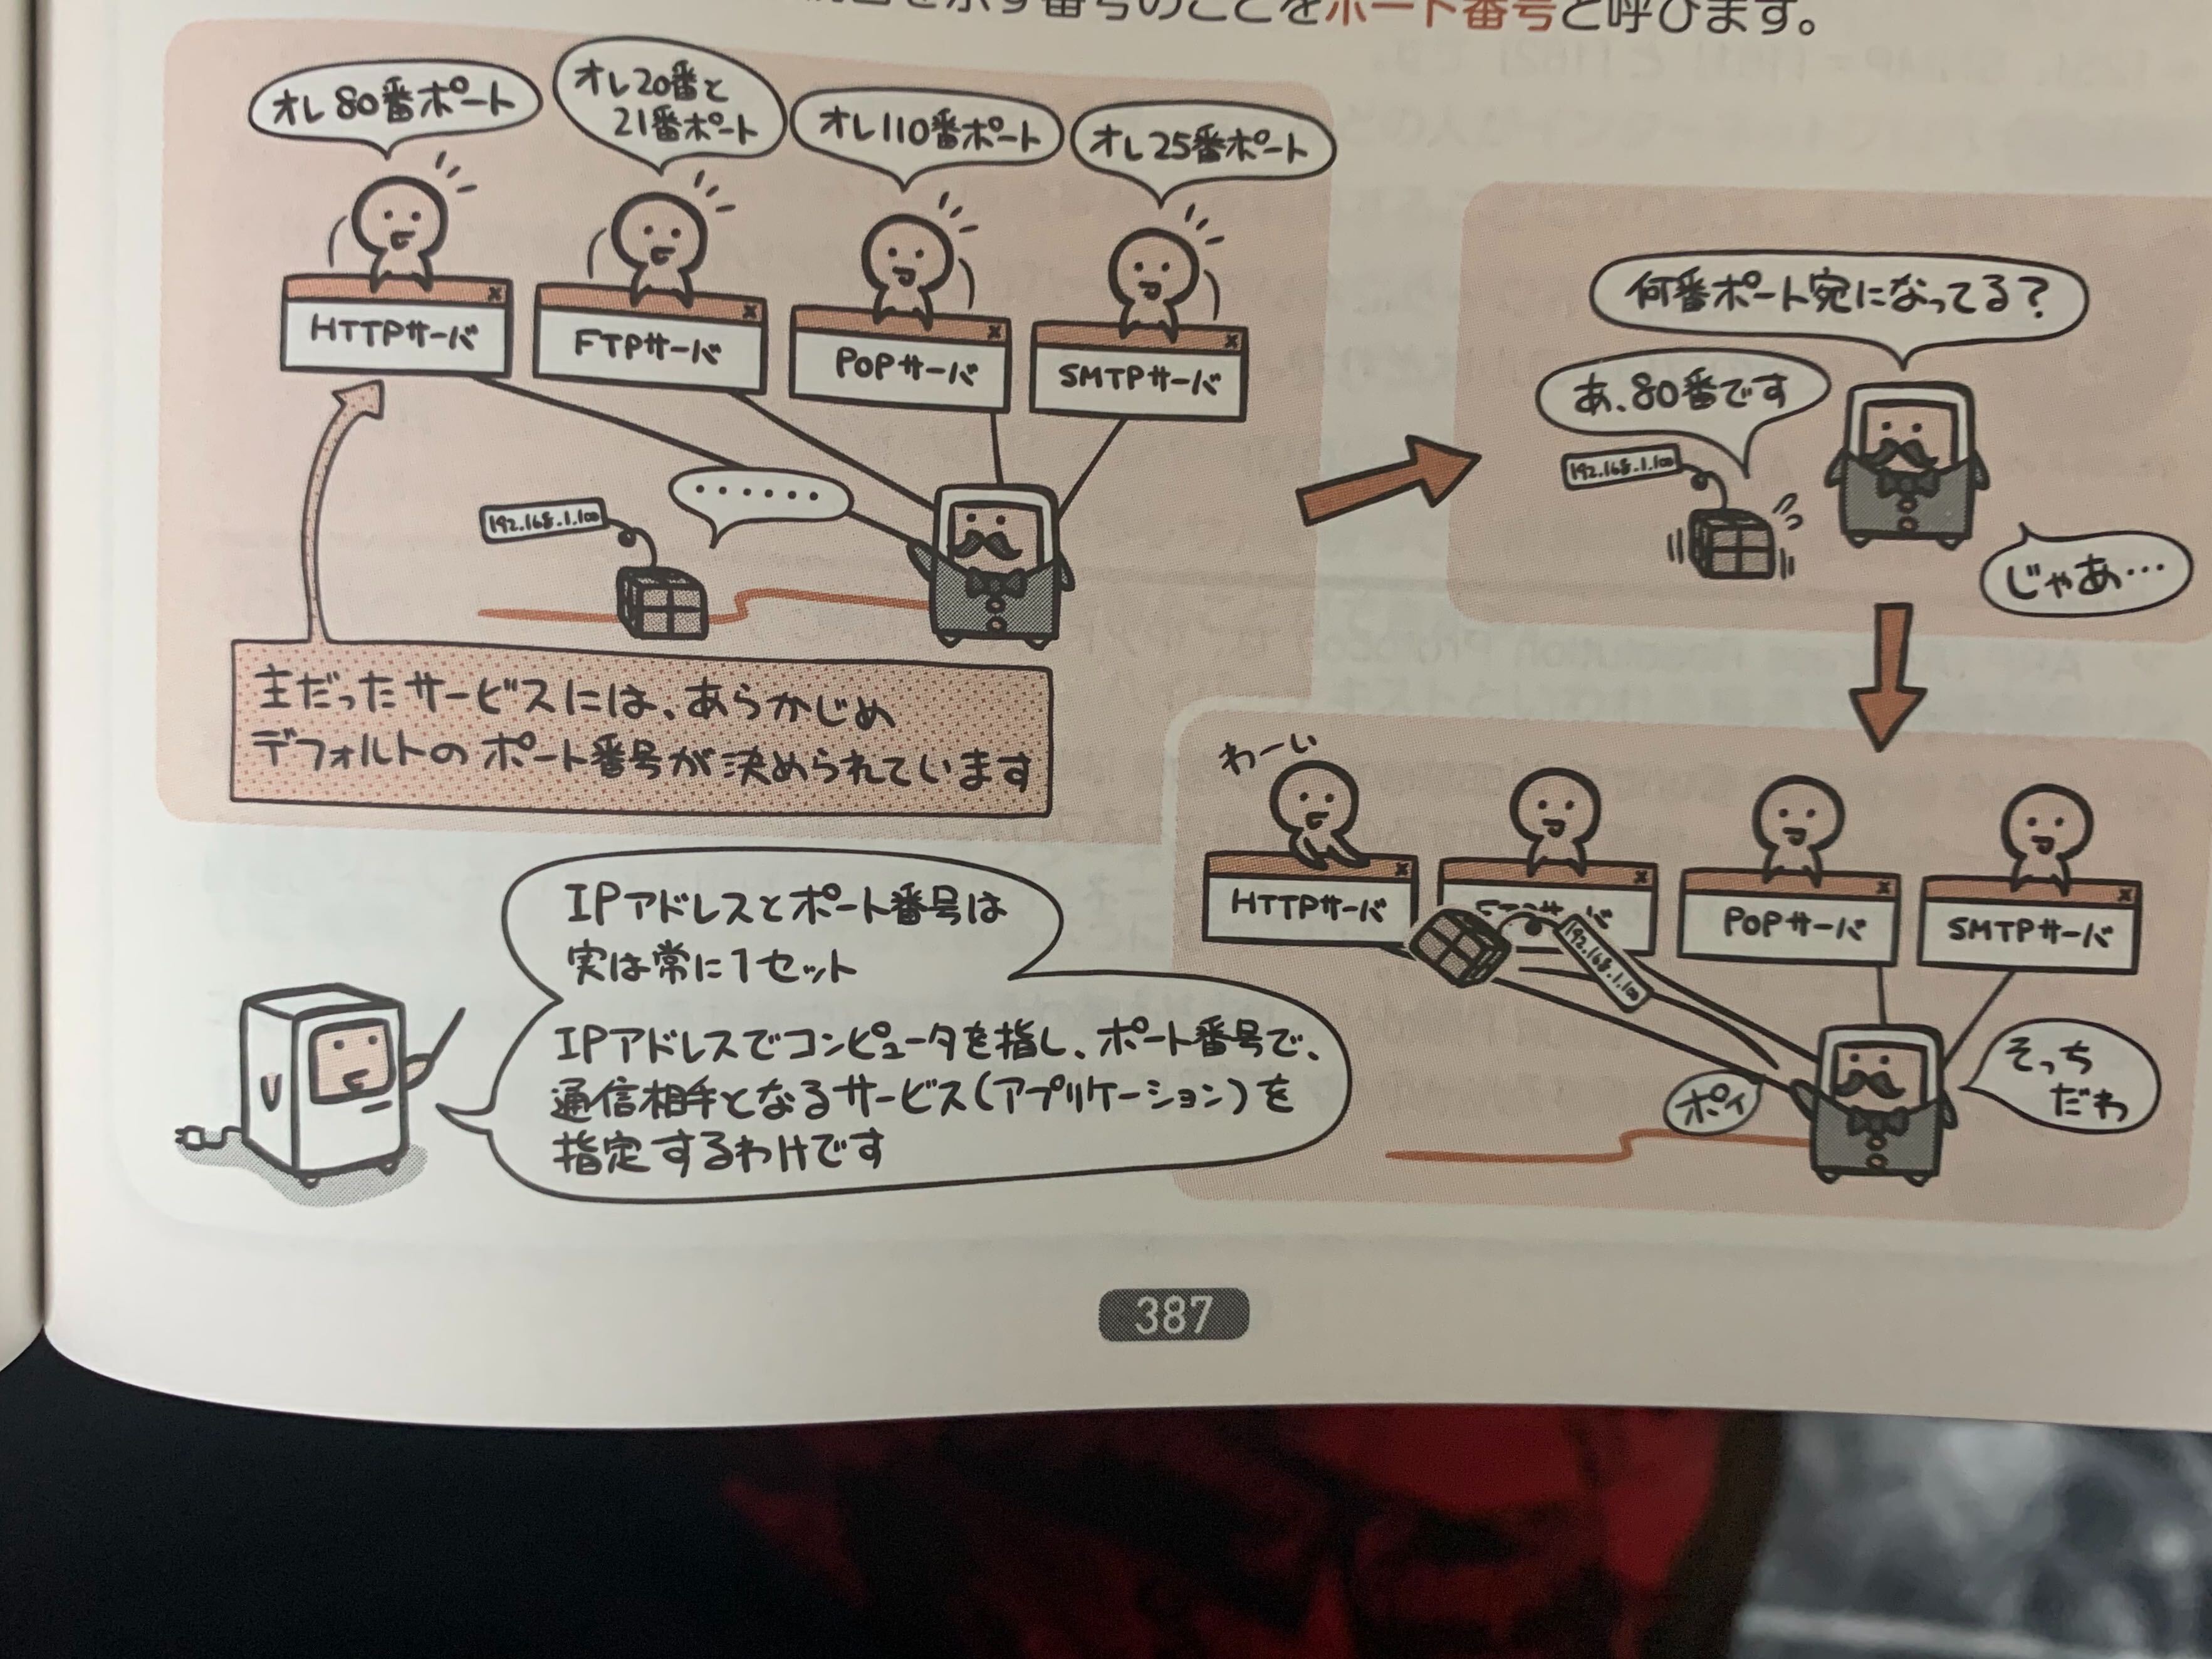 を示す番号のことをポート番号と呼びます。
オレ80番ポート
オレ20番と
21番ポート
オレ110番ポート
オレ25番ポート
HTTPサーバ
FTPサーバ
POPサーバ
SMTPサーバ
192.168.1.100
・・・・・・
主だったサービスには、あらかじめ
デフォルトのポート番号が決められています
何番ポート宛になってる?
あ、80番です
192.168.1.100
じゃあ…
わーい
HTTPサーバ
POPサーバ
SMTPサーバ
192.168.1.100
ポイ
そっち
だわ
IPアドレスとポート番号は
実は常に1セット
IPアドレスでコンピュータを指し、ポート番号で、
通信相手となるサービス(アプリケーション)を
指定するわけです
387